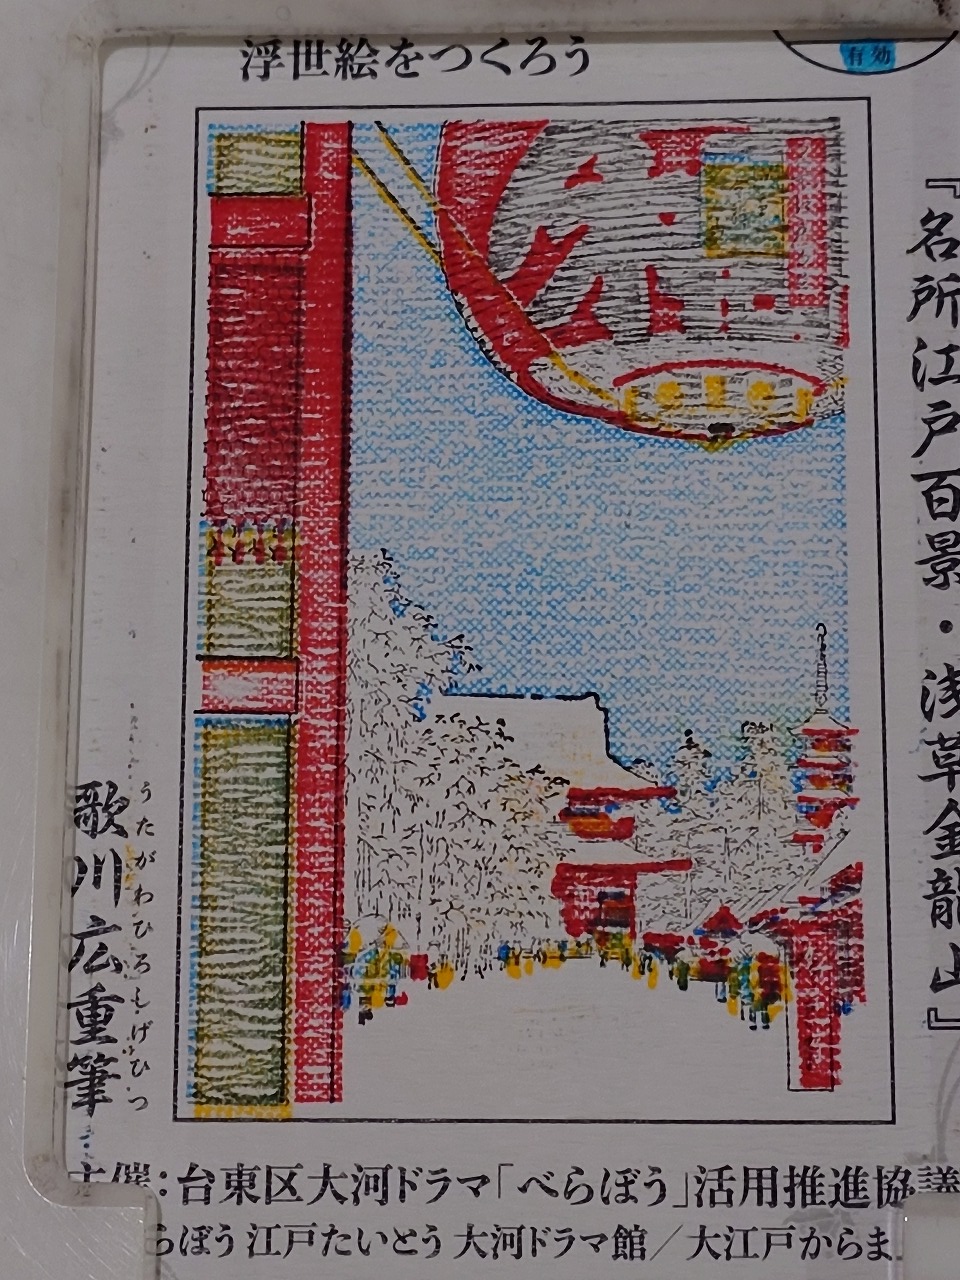 浮世絵をつくろう
有効
『名所江戸百景・浅草金龍山』
うたがわひろしげひつ
歌川広重筆
主催：台東区大河ドラマ「べらぼう」活用推進協議
らぼう 江戸たいとう 大河ドラマ館／大江戸からま